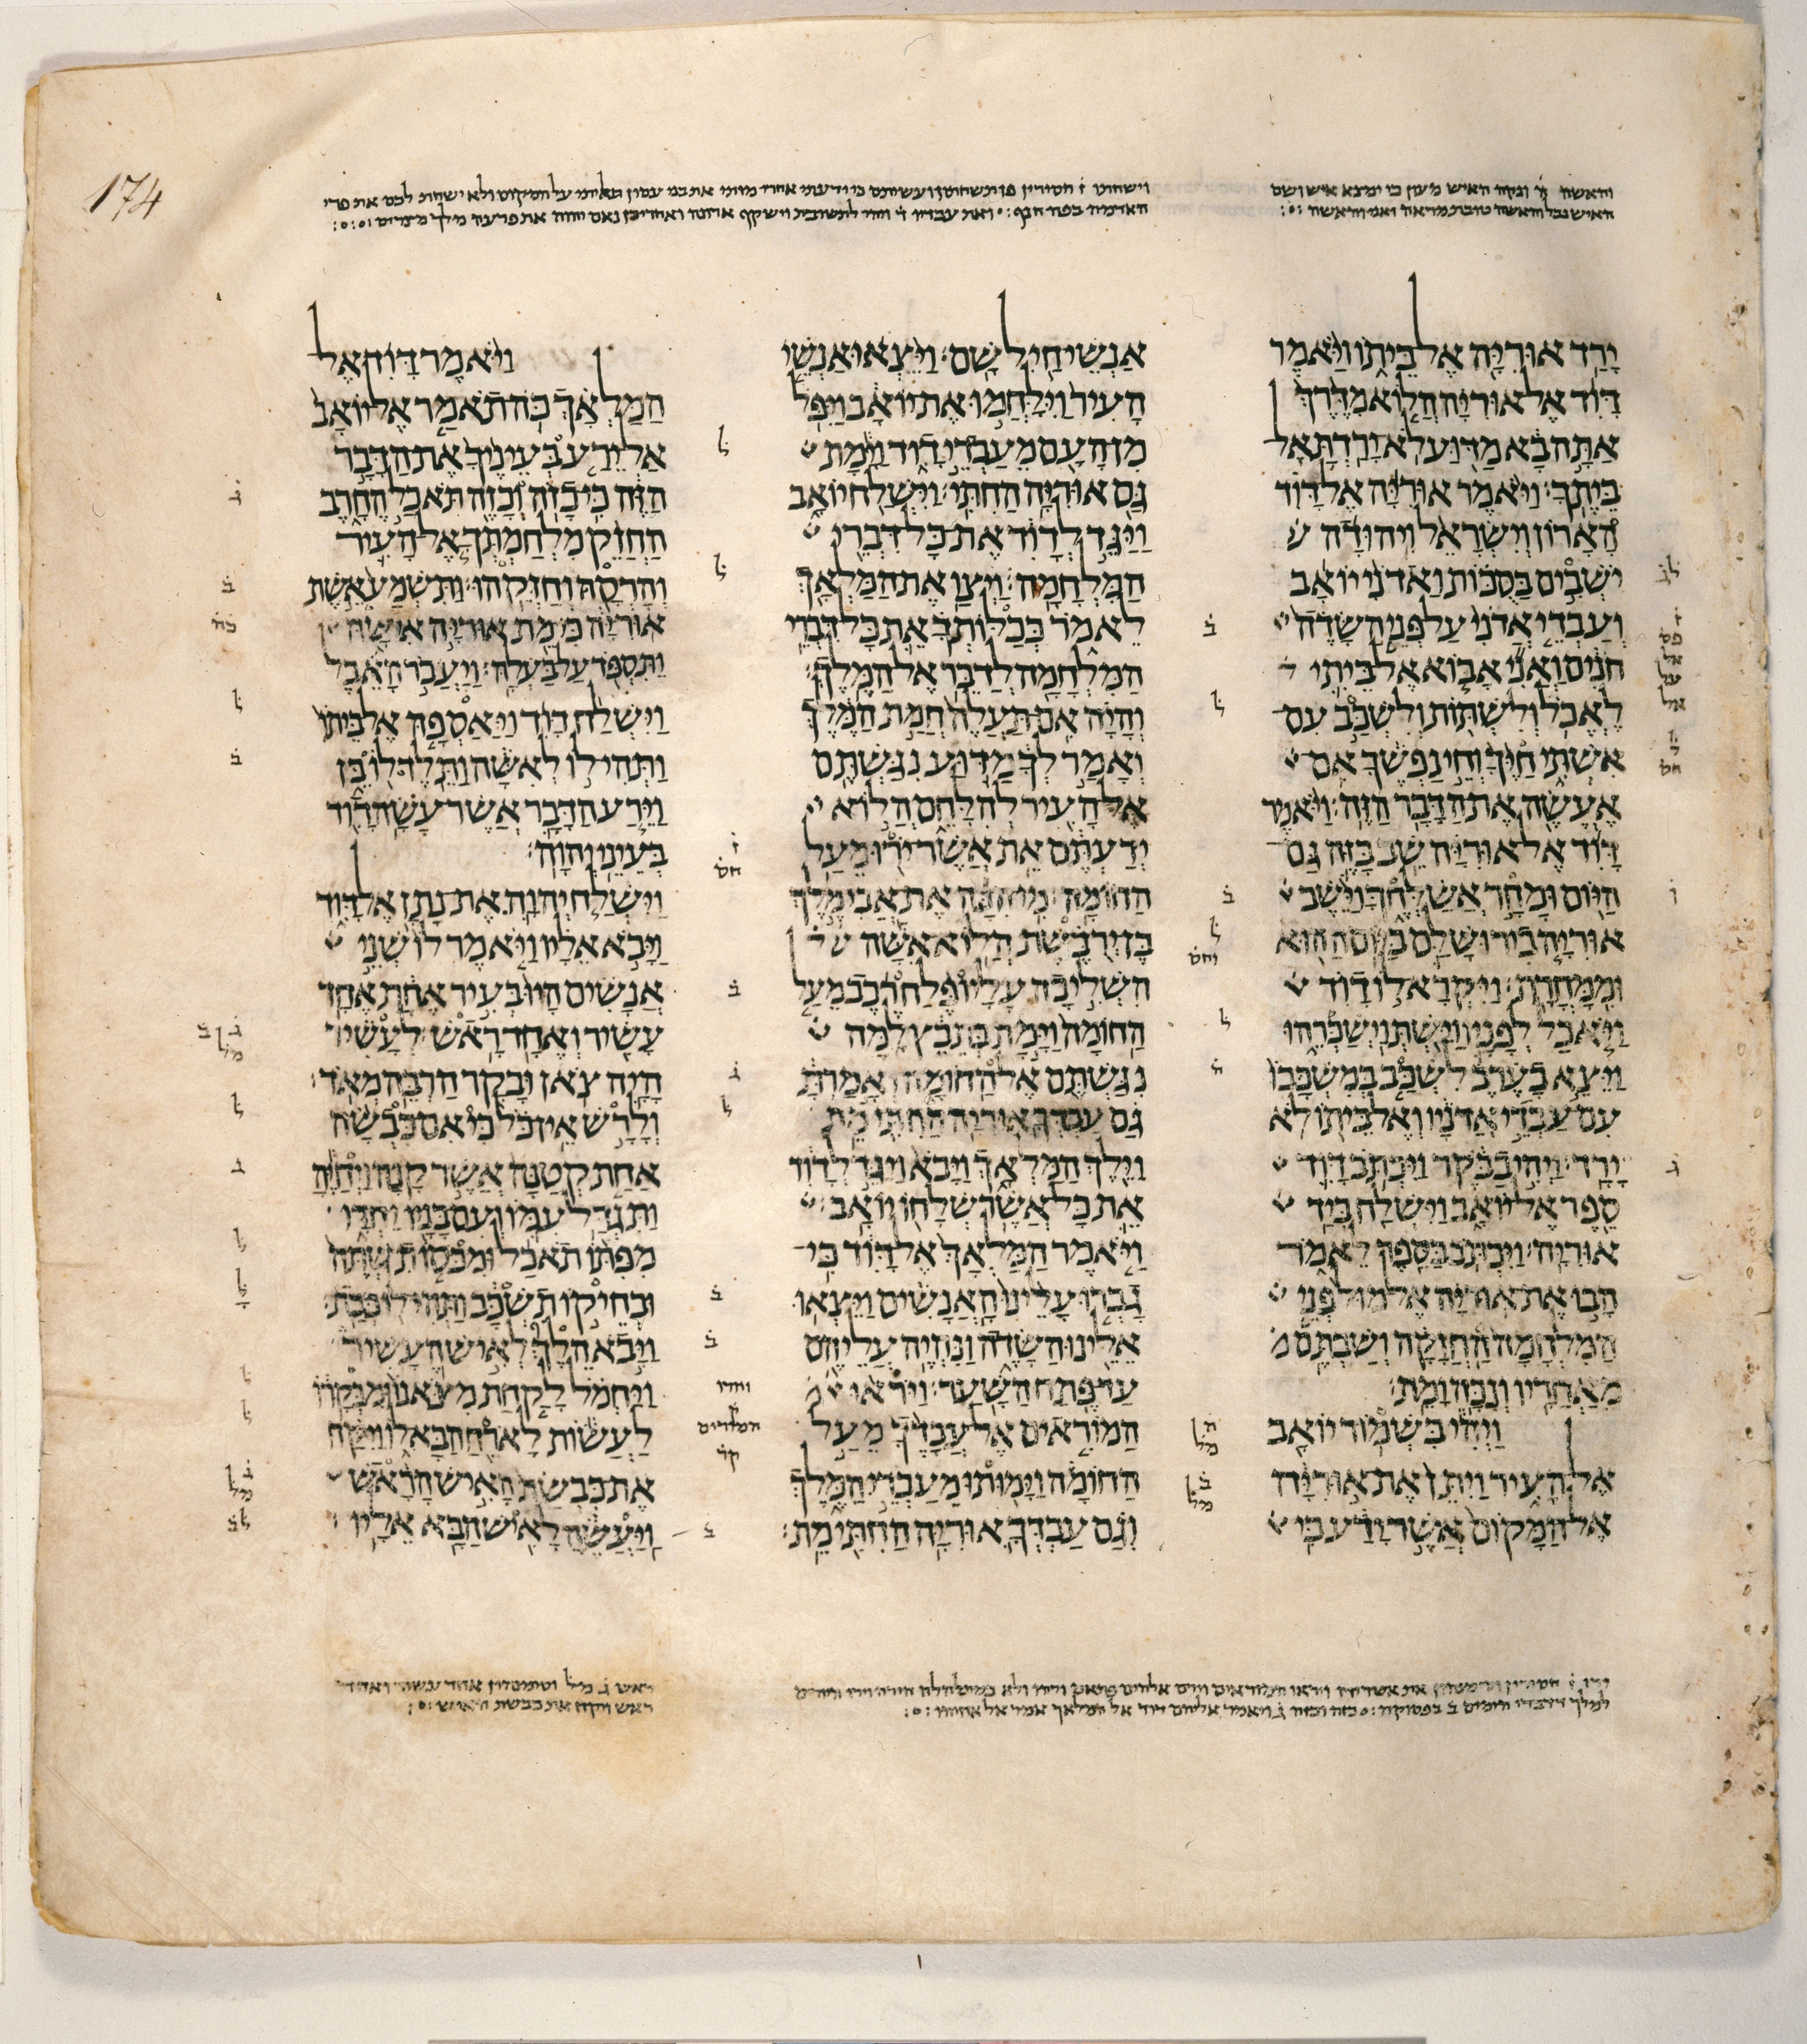 והאשה ה ונקה האיש מעון כי ימצא איש ושם
האיש נבל והאשה טובת מראה ואני והאשה
וישחתו ז חסירין פן תשחתון ועשיתם כי ידעתי אחרי מותי את בני עמון על המקום ולא ישחת לכם את פרי
האדמה ואת עבדיו ד וישקף ארונה ואחריכן נאם יהוה את פרעה מלך מצרים
174
יָרַד אוּרִיָּה אֶל בֵּיתוֹ וַיֹּאמֶר
דָּוִד אֶל אוּרִיָּה הֲלוֹא מִדֶּרֶךְ
אַתָּה בָא מַדּוּעַ לֹא יָרַדְתָּ אֶל
בֵּיתֶךָ׃ וַיֹּאמֶר אוּרִיָּה אֶל דָּוִד
הָאָרוֹן וְיִשְׂרָאֵל וִיהוּדָה
יֹשְׁבִים בַּסֻּכּוֹת וַאדֹנִי יוֹאָב
וְעַבְדֵי אֲדֹנִי עַל פְּנֵי הַשָּׂדֶה
חֹנִים וַאֲנִי אָבוֹא אֶל בֵּיתִי
לֶאֱכֹל וְלִשְׁתּוֹת וְלִשְׁכַּב עִם
אִשְׁתִּי חַיֶּךָ וְחֵי נַפְשֶׁךָ אִם
אֶעֱשֶׂה אֶת הַדָּבָר הַזֶּה׃ וַיֹּאמֶר
דָּוִד אֶל אוּרִיָּה שֵׁב בָּזֶה גַּם
הַיּוֹם וּמָחָר אֲשַׁלְּחֶךָּ וַיֵּשֶׁב
אוּרִיָּה בִירוּשָׁלִַם בַּיּוֹם הַהוּא
וּמִמָּחֳרָת׃ וַיִּקְרָא לוֹ דָוִד
וַיֹּאכַל לְפָנָיו וַיֵּשְׁתְּ וַיְשַׁכְּרֵהוּ
וַיֵּצֵא בָעֶרֶב לִשְׁכַּב בְּמִשְׁכָּבוֹ
עִם עַבְדֵי אֲדֹנָיו וְאֶל בֵּיתוֹ לֹא
יָרָד׃ וַיְהִי בַבֹּקֶר וַיִּכְתֹּב דָּוִד
סֵפֶר אֶל יוֹאָב וַיִּשְׁלַח בְּיַד
אוּרִיָּה׃ וַיִּכְתֹּב בַּסֵּפֶר לֵאמֹר
הָבוּ אֶת אוּרִיָּה אֶל מוּל פְּנֵי
הַמִּלְחָמָה הַחֲזָקָה וְשַׁבְתֶּם
מֵאַחֲרָיו וְנִכָּה וָמֵת׃
וַיְהִי בִּשְׁמוֹר יוֹאָב
אֶל הָעִיר וַיִּתֵּן אֶת אוּרִיָּה
אֶל הַמָּקוֹם אֲשֶׁר יָדַע כִּי
אַנְשֵׁי חַיִל שָׁם׃ וַיֵּצְאוּ אַנְשֵׁי
הָעִיר וַיִּלָּחֲמוּ אֶת יוֹאָב וַיִּפֹּל
מִן הָעָם מֵעַבְדֵי דָוִד וַיָּמָת
גַּם אוּרִיָּה הַחִתִּי׃ וַיִּשְׁלַח יוֹאָב
וַיַּגֵּד לְדָוִד אֶת כָּל דִּבְרֵי
הַמִּלְחָמָה׃ וַיְצַו אֶת הַמַּלְאָךְ
לֵאמֹר כְּכַלּוֹתְךָ אֵת כָּל דִּבְרֵי
הַמִּלְחָמָה לְדַבֵּר אֶל הַמֶּלֶךְ׃
וְהָיָה אִם תַּעֲלֶה חֲמַת הַמֶּלֶךְ
וְאָמַר לְךָ מַדּוּעַ נִגַּשְׁתֶּם
אֶל הָעִיר לְהִלָּחֵם הֲלוֹא
יְדַעְתֶּם אֵת אֲשֶׁר יֹרוּ מֵעַל
הַחוֹמָה׃ מִי הִכָּה אֶת אֲבִימֶלֶךְ
בֶּן יְרֻבֶּשֶׁת הֲלוֹא אִשָּׁה
הִשְׁלִיכָה עָלָיו פֶּלַח רֶכֶב מֵעַל
הַחוֹמָה וַיָּמָת בְּתֵבֵץ לָמָּה
נִגַּשְׁתֶּם אֶל הַחוֹמָה וְאָמַרְתָּ
גַּם עַבְדְּךָ אוּרִיָּה הַחִתִּי מֵת׃
וַיֵּלֶךְ הַמַּלְאָךְ וַיָּבֹא וַיַּגֵּד לְדָוִד
אֵת כָּל אֲשֶׁר שְׁלָחוֹ יוֹאָב׃
וַיֹּאמֶר הַמַּלְאָךְ אֶל דָּוִד כִּי
גָבְרוּ עָלֵינוּ הָאֲנָשִׁים וַיֵּצְאוּ
אֵלֵינוּ הַשָּׂדֶה וַנִּהְיֶה עֲלֵיהֶם
עַד פֶּתַח הַשָּׁעַר׃ וַיֹּרְאוּ
הַמּוֹרְאִים אֶל עֲבָדֶךָ מֵעַל
הַחוֹמָה וַיָּמוּתוּ מֵעַבְדֵי הַמֶּלֶךְ
וְגַם עַבְדְּךָ אוּרִיָּה הַחִתִּי מֵת׃
וַיֹּאמֶר דָּוִד אֶל
הַמַּלְאָךְ כֹּה תֹאמַר אֶל יוֹאָב
אַל יֵרַע בְּעֵינֶיךָ אֶת הַדָּבָר
הַזֶּה כִּי כָזֹה וְכָזֶה תֹּאכַל הֶחָרֶב
הַחֲזֵק מִלְחַמְתְּךָ אֶל הָעִיר
וְהָרְסָהּ וְחַזְּקֵהוּ׃ וַתִּשְׁמַע אֵשֶׁת
אוּרִיָּה כִּי מֵת אוּרִיָּה אִישָׁהּ
וַתִּסְפֹּד עַל בַּעְלָהּ׃ וַיַּעֲבֹר הָאֵבֶל
וַיִּשְׁלַח דָּוִד וַיַּאַסְפָהּ אֶל בֵּיתוֹ
וַתְּהִי לוֹ לְאִשָּׁה וַתֵּלֶד לוֹ בֵּן
וַיֵּרַע הַדָּבָר אֲשֶׁר עָשָׂה דָוִד
בְּעֵינֵי יְהוָה׃
וַיִּשְׁלַח יְהוָה אֶת נָתָן אֶל דָּוִד
וַיָּבֹא אֵלָיו וַיֹּאמֶר לוֹ שְׁנֵי
אֲנָשִׁים הָיוּ בְּעִיר אֶחָת אֶחָד
עָשִׁיר וְאֶחָד רָאשׁ׃ לְעָשִׁיר
הָיָה צֹאן וּבָקָר הַרְבֵּה מְאֹד׃
וְלָרָשׁ אֵין כֹּל כִּי אִם כִּבְשָׂה
אַחַת קְטַנָּה אֲשֶׁר קָנָה וַיְחַיֶּהָ
וַתִּגְדַּל עִמּוֹ וְעִם בָּנָיו יַחְדָּו
מִפִּתּוֹ תֹאכַל וּמִכֹּסוֹ תִשְׁתֶּה
וּבְחֵיקוֹ תִשְׁכָּב וַתְּהִי לוֹ כְּבַת׃
וַיָּבֹא הֵלֶךְ לְאִישׁ הֶעָשִׁיר
וַיַּחְמֹל לָקַחַת מִצֹּאנוֹ וּמִבְּקָרוֹ
לַעֲשׂוֹת לָאֹרֵחַ הַבָּא לוֹ וַיִּקַּח
אֶת כִּבְשַׂת הָאִישׁ הָרָאשׁ
וַיַּעֲשֶׂהָ לָאִישׁ הַבָּא אֵלָיו׃